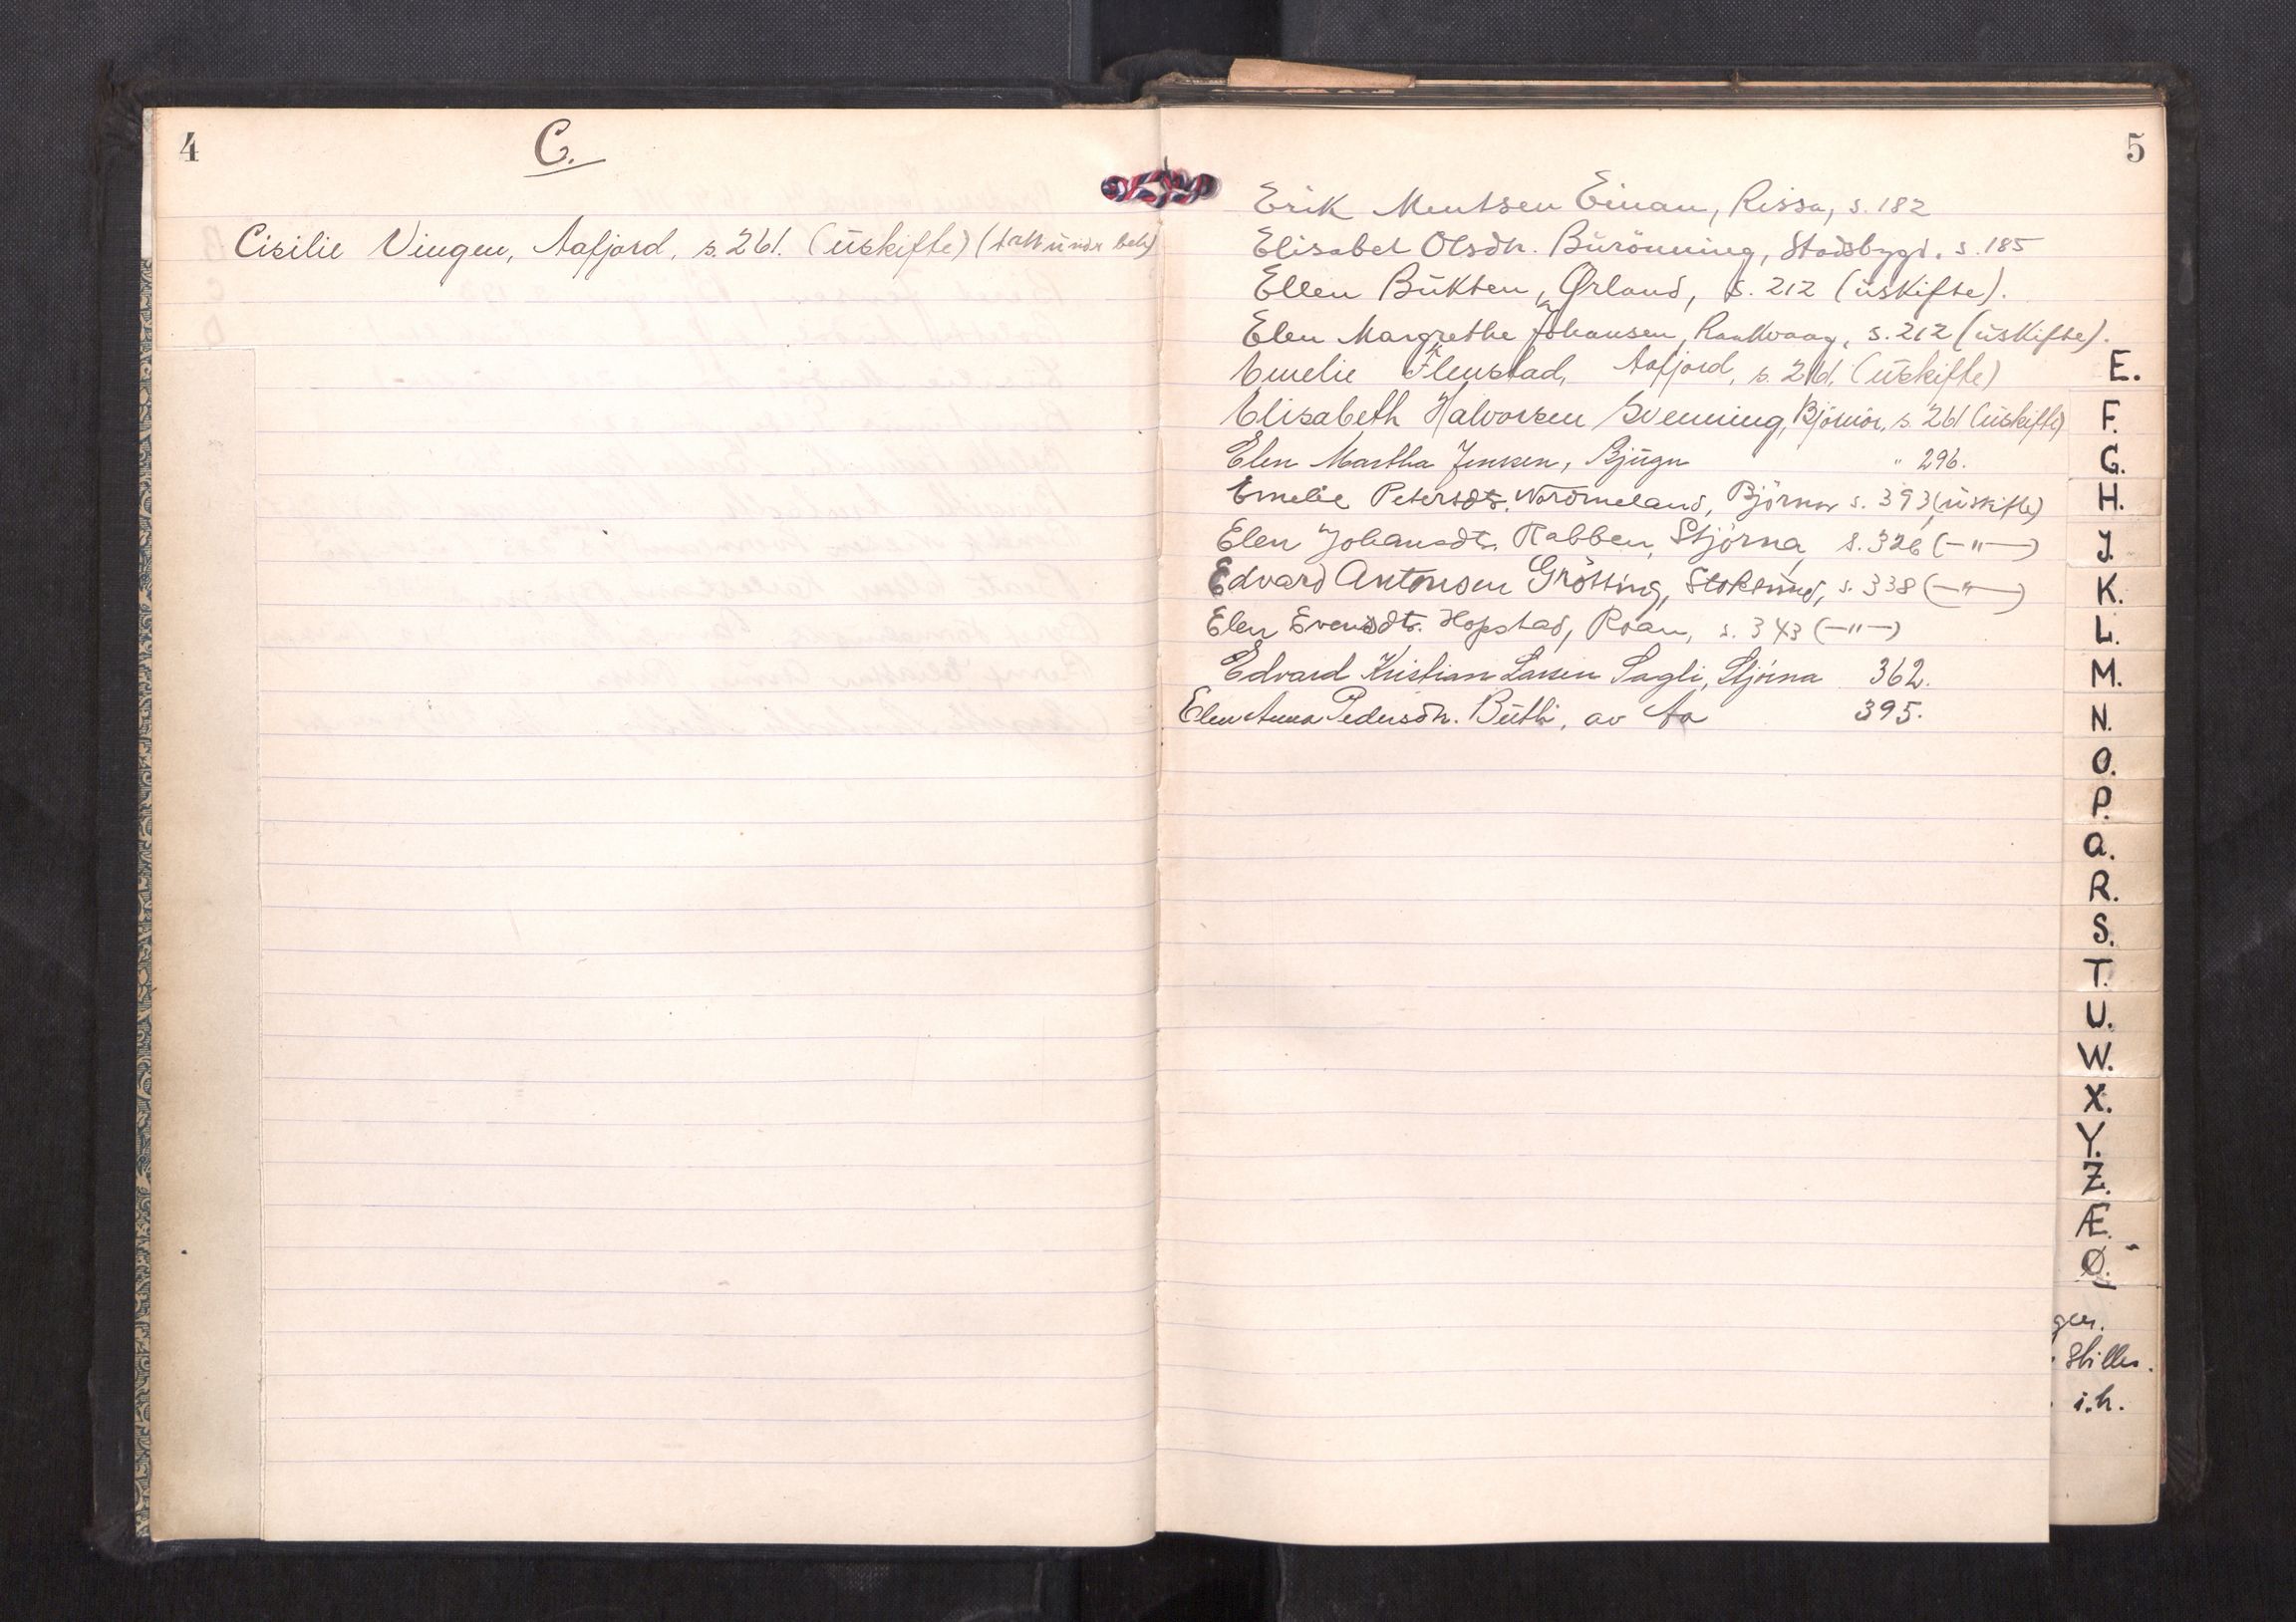 4
C.
Cisilie Vingen, Aafjord, s. 261. (uskifte)
5
Erik Mentsen Einan, Rissa, s. 182
Elisabet Olsdtr. Burönning, Stadsbygd. s. 185
Ellen Bukten, Ørland, s. 212 (uskifte).
Elen Margrethe Johansen, Raakvaag, s. 212 (uskifte).
Emelie Flenstad, Aafjord, s. 261. (uskifte)
Elisabeth Halvorsen Svenning, Björnör, s. 261 (uskifte)
Elen Martha Jensen, Bjugn " 296.
Emelie Petersdt. Nordmeland, Björnör s. 393 (uskifte)
Elen Johansdt. Rabben, Stjörna s. 326 (—"—)
Edvard Antonsen Grötting, Stoksund, s. 338 (—"—)
Elen Evensdt. Hopstad, Roan, s. 343 (—"—)
Edvard Kristian Larsen Sagli, Stjörna 362.
Elen Anna Pedersdtr. Butli, av Aa 395.
E.
F.
G.
H.
J.
K.
L.
M.
N.
O.
P.
Q.
R.
S.
T.
U.
W.
X.
Y.
Z.
Æ.
Ø.
i.h.